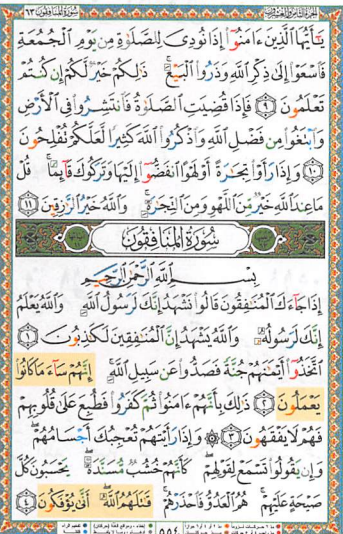 سورة المنافقون ٦٣
يَٰٓأَيُّهَا ٱلَّذِينَ ءَامَنُوٓا۟ إِذَا نُودِىَ لِلصَّلَوٰةِ مِن يَوْمِ ٱلْجُمُعَةِ
فَٱسْعَوْا۟ إِلَىٰ ذِكْرِ ٱللَّهِ وَذَرُوا۟ ٱلْبَيْعَ ۚ ذَٰلِكُمْ خَيْرٌ لَّكُمْ إِن كُنتُمْ
تَعْلَمُونَ ٩ فَإِذَا قُضِيَتِ ٱلصَّلَوٰةُ فَٱنتَشِرُوا۟ فِى ٱلْأَرْضِ
وَٱبْتَغُوا۟ مِن فَضْلِ ٱللَّهِ وَٱذْكُرُوا۟ ٱللَّهَ كَثِيرًا لَّعَلَّكُمْ تُفْلِحُونَ
١٠ وَإِذَا رَأَوْا۟ تِجَٰرَةً أَوْ لَهْوًا ٱنفَضُّوٓا۟ إِلَيْهَا وَتَرَكُوكَ قَآئِمًا ۚ قُلْ
مَا عِندَ ٱللَّهِ خَيْرٌ مِّنَ ٱللَّهْوِ وَمِنَ ٱلتِّجَٰرَةِ ۚ وَٱللَّهُ خَيْرُ ٱلرَّٰزِقِينَ ١١
سُورَةُ المُنَافِقُون
بِسْمِ ٱللَّهِ ٱلرَّحْمَٰنِ ٱلرَّحِيمِ
إِذَا جَآءَكَ ٱلْمُنَٰفِقُونَ قَالُوا۟ نَشْهَدُ إِنَّكَ لَرَسُولُ ٱللَّهِ ۗ وَٱللَّهُ يَعْلَمُ
إِنَّكَ لَرَسُولُهُۥ وَٱللَّهُ يَشْهَدُ إِنَّ ٱلْمُنَٰفِقِينَ لَكَٰذِبُونَ ١
ٱتَّخَذُوٓا۟ أَيْمَٰنَهُمْ جُنَّةً فَصَدُّوا۟ عَن سَبِيلِ ٱللَّهِ ۚ إِنَّهُمْ سَآءَ مَا كَانُوا۟
يَعْمَلُونَ ٢ ذَٰلِكَ بِأَنَّهُمْ ءَامَنُوا۟ ثُمَّ كَفَرُوا۟ فَطُبِعَ عَلَىٰ قُلُوبِهِمْ
فَهُمْ لَا يَفْقَهُونَ ٣ ۞ وَإِذَا رَأَيْتَهُمْ تُعْجِبُكَ أَجْسَامُهُمْ ۖ
وَإِن يَقُولُوا۟ تَسْمَعْ لِقَوْلِهِمْ ۖ كَأَنَّهُمْ خُشُبٌ مُّسَنَّدَةٌ ۖ يَحْسَبُونَ كُلَّ
صَيْحَةٍ عَلَيْهِمْ ۚ هُمُ ٱلْعَدُوُّ فَٱحْذَرْهُمْ ۚ قَٰتَلَهُمُ ٱللَّهُ ۖ أَنَّىٰ يُؤْفَكُونَ ٤
٥٥٤